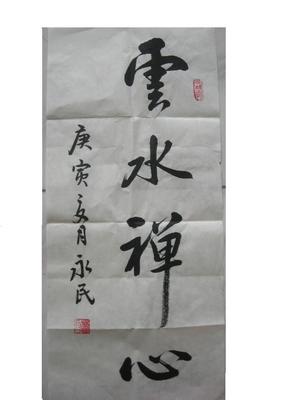 雲水禅心
庚寅亥月永民